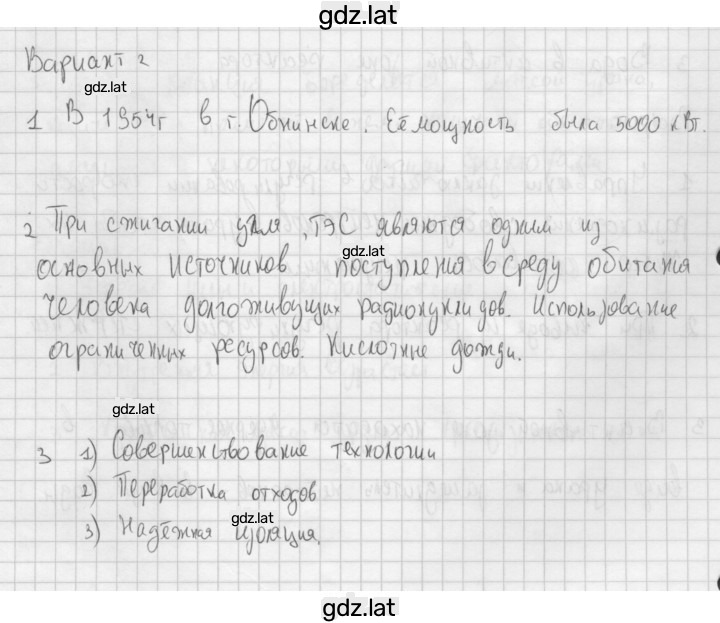 gdz.lat
Вариант 2
gdz.lat
1 В 1954г в г. Обнинске. Её мощность была 5000 кВт.
2 При сжигании угля, ТЭС являются одним из
gdz.lat
основных источников поступления в среду обитания
человека долгоживущих радионуклидов. Использование
ограниченных ресурсов. Кислотные дожди.
gdz.lat
3 1) Совершенствование технологии
2) Переработка отходов
gdz.lat
3) Надёжная изоляция.
gdz.lat